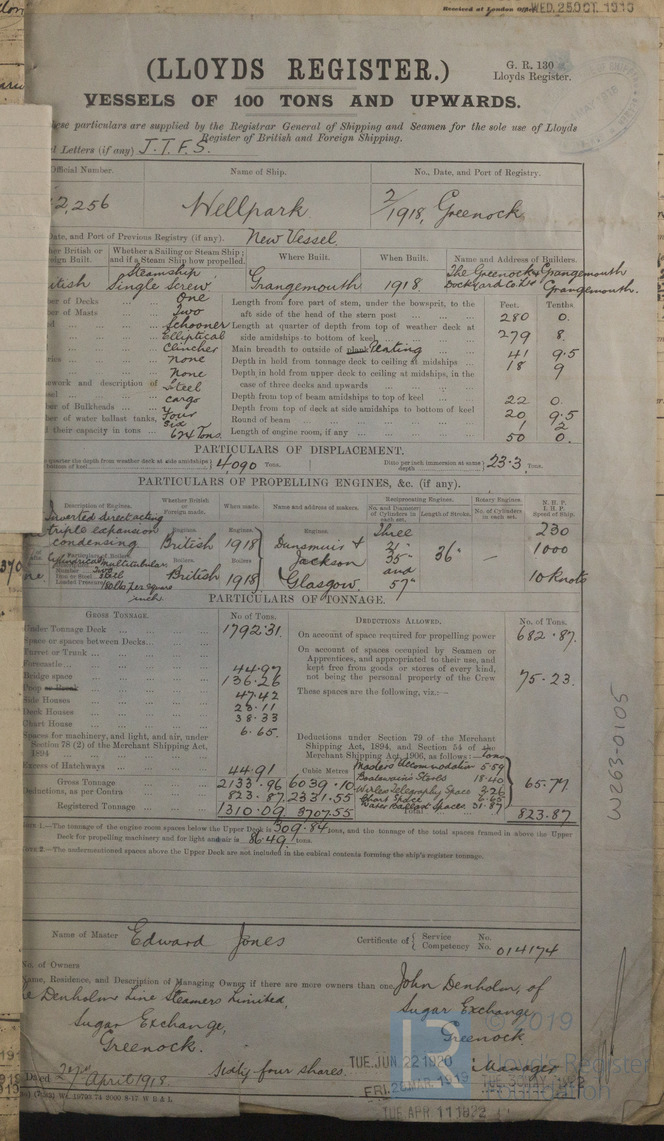 Received at London Office WED. 25 OCT. 1919
(LLOYDS REGISTER.)
G. R. 130
Lloyds Register.
VESSELS OF 100 TONS AND UPWARDS.
these particulars are supplied by the Registrar General of Shipping and Seamen for the sole use of Lloyds
Register of British and Foreign Shipping.
Letters (if any) J.T.F.S.
Official Number. Name of Ship. No., Date, and Port of Registry.
2,256 Wellpark. 2/1918, Greenock
Date, and Port of Previous Registry (if any). New Vessel.
Whether a Sailing or Steam Ship; and if a Steam Ship how propelled. Where Built. When Built. Name and Address of Builders.
Steamship Single Screw Grangemouth 1918 The Greenock & Grangemouth Dockyard Co Ltd Grangemouth.
of Decks One
of Masts Two
Schooner
Elliptical
Clincher
None
None
work and description of Steel
cargo
of Bulkheads
of water ballast tanks, Four
Six
their capacity in tons 674 Tons.
Feet. Tenths.
Length from fore part of stem, under the bowsprit, to the
aft side of the head of the stern post 280 0.
Length at quarter of depth from top of weather deck at
side amidships to bottom of keel 279 8.
Main breadth to outside of plank Plating 41 9.5
Depth in hold from tonnage deck to ceiling at midships 18 9
Depth in hold from upper deck to ceiling at midships, in the
case of three decks and upwards
Depth from top of beam amidships to top of keel 22 0.
Depth from top of deck at side amidships to bottom of keel 20 9.5
Round of beam 1 2
Length of engine room, if any 50 0.
PARTICULARS OF DISPLACEMENT.
quarter the depth from weather deck at side amidships to bottom of keel 4090 Tons. Ditto per inch immersion at same depth 23.3 Tons.
PARTICULARS OF PROPELLING ENGINES, &c. (if any).
Description of Engines. Whether British or Foreign made. When made. Name and address of makers. Reciprocating Engines. Rotary Engines. N.H.P. I.H.P. Speed of Ship.
No. and Diameter of Cylinders in each set. Length of Stroke. No. of Cylinders in each set.
Inverted direct acting
triple expansion
condensing
Engines. British 1918
Dunsmuir & Jackson Glasgow.
Three 21" 35" and 57" 36" — 230 1000 10 Knots
Particulars of Boilers
Cylindrical Multitubular
Two
Steel
180 lbs per square inch
Boilers. British 1918
PARTICULARS OF TONNAGE.
GROSS TONNAGE. No. of Tons.
Under Tonnage Deck 1792.31
Space or spaces between Decks
Turret or Trunk
Forecastle 44.97
Bridge space 136.26
Poop or Break 47.42
Side Houses
Deck Houses
Chart House
38.33
6.65.
Spaces for machinery, and light, and air, under
Section 78 (2) of the Merchant Shipping Act,
1894
Excess of Hatchways 44.91
Cubic Metres
Gross Tonnage 2133.96 6039.10
Deductions, as per Contra 823.87 2331.55
Registered Tonnage 1310.09 3707.55
DEDUCTIONS ALLOWED. No. of Tons.
On account of space required for propelling power 682.87.
On account of spaces occupied by Seamen or
Apprentices, and appropriated to their use, and
kept free from goods or stores of every kind,
not being the personal property of the Crew 75.23.
These spaces are the following, viz.:—
Deductions under Section 79 of the Merchant
Shipping Act, 1894, and Section 54 of the
Merchant Shipping Act, 1906, as follows:— tons
Masters Accommodation 5.59
Boatswains Stores 18.40
Wireless Telegraphy Space 3.26
Chart Space 6.65
Water Ballast Spaces 31.87
65.77
Total 823.87
1.—The tonnage of the engine room spaces below the Upper Deck is 309.84 tons, and the tonnage of the total spaces framed in above the Upper
Deck for propelling machinery and for light and air is 86.49 tons.
2.—The undermentioned spaces above the Upper Deck are not included in the cubical contents forming the ship's register tonnage.
Name of Master Edward Jones Certificate of { Service No. Competency No. 014174
No. of Owners
Name, Residence, and Description of Managing Owner if there are more owners than one John Denholm, of
Denholm Line Steamers Limited, Sugar Exchange
Sugar Exchange, Greenock
Greenock. Manager
Dated 27th April 1918 Sixty four shares.
TUE. JUN. 22 1920
TUE APR 11 1922
W263-0105
© 2019
Lloyd's Register
Foundation